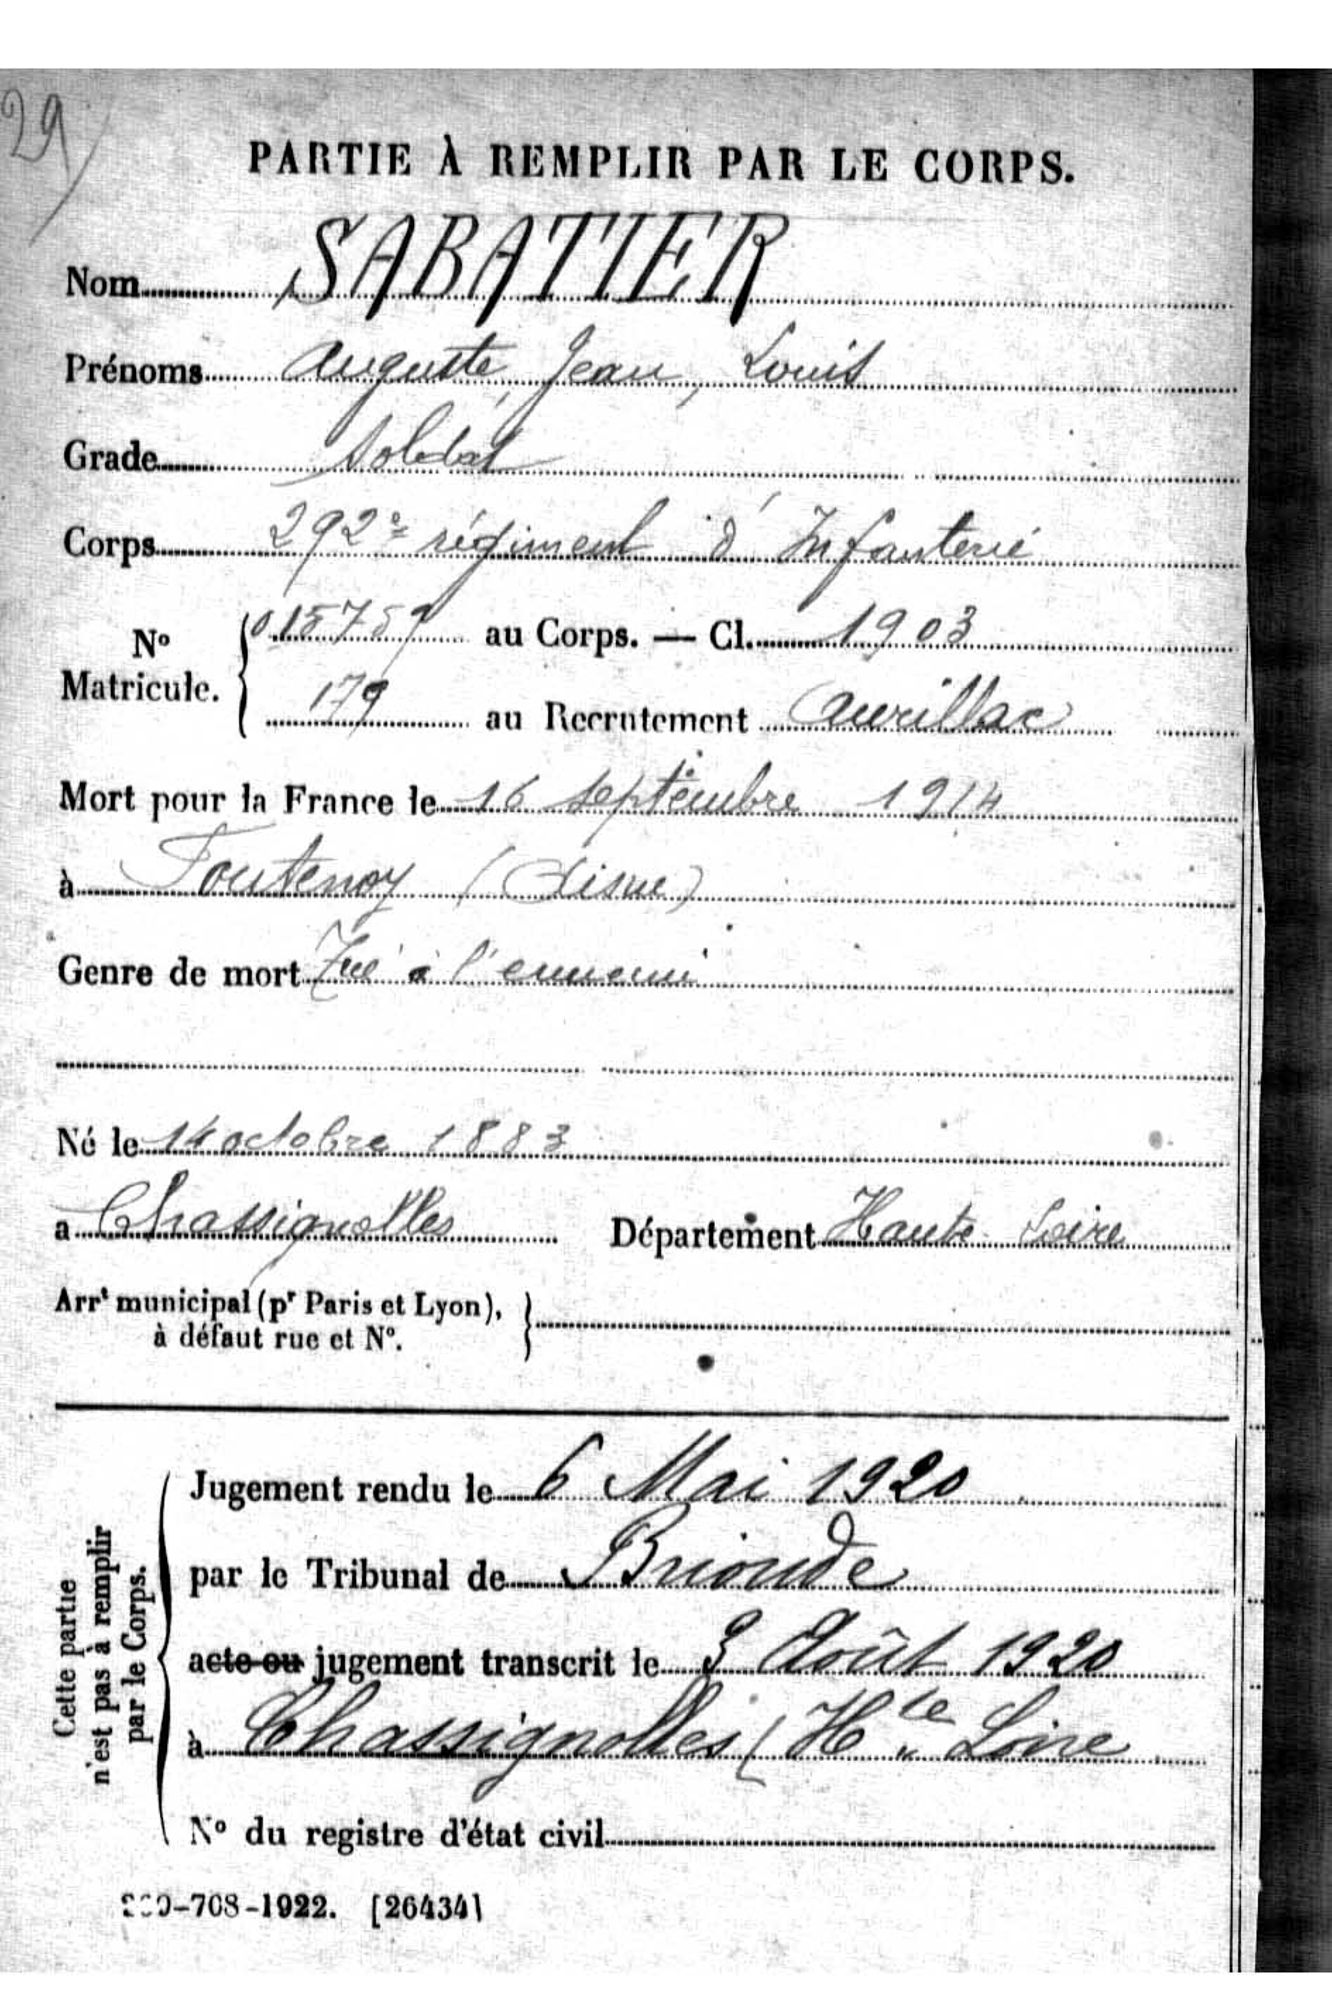 29
PARTIE À REMPLIR PAR LE CORPS.
Nom SABATIER
Prénoms Auguste, Jean, Louis
Grade Soldat
Corps 292e régiment d'Infanterie
No Matricule. 015757 au Corps. — Cl. 1903
179 au Recrutement Aurillac
Mort pour la France le 16 septembre 1914
à Fontenoy (Aisne)
Genre de mort Tué à l'ennemi
Né le 14 octobre 1883
a Chassignolles Département Haute Loire
Arrt municipal (pr Paris et Lyon),
à défaut rue et No.
Cette partie
n'est pas à remplir
par le Corps.
Jugement rendu le 6 Mai 1920
par le Tribunal de Brioude
acte ou jugement transcrit le 3 Août 1920
à Chassignolles (Hte Loire
No du registre d'état civil
-708-1922. [26434]